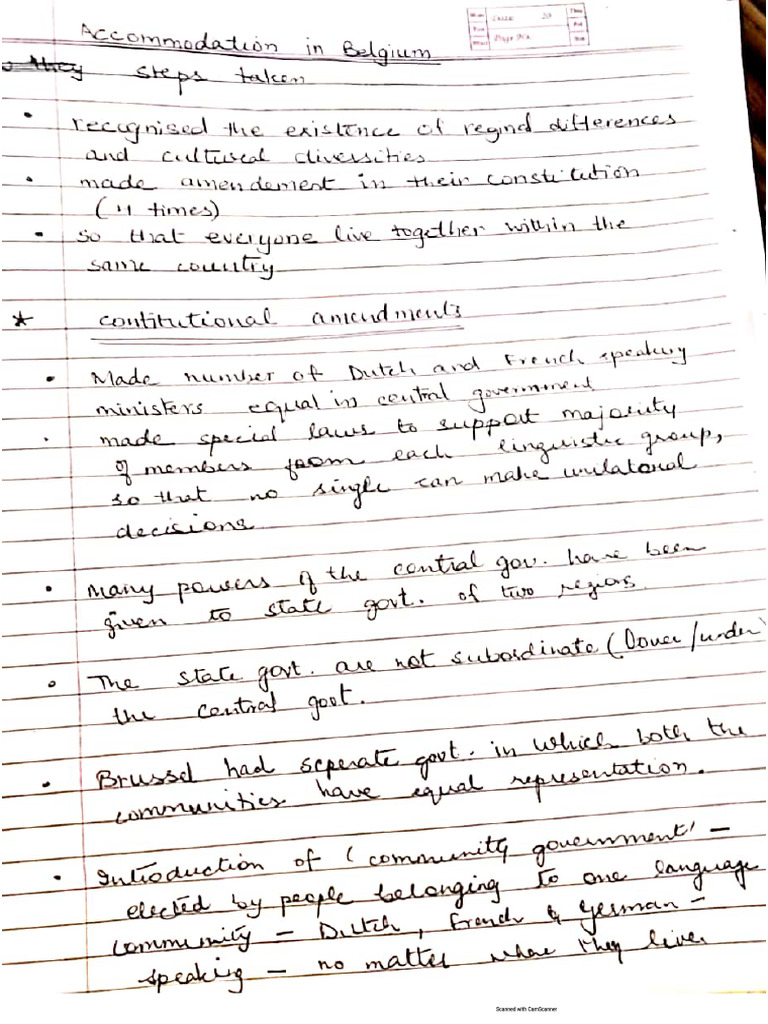 Accommodation in Belgium
Date 20
Page No.
they steps taken
• recognised the existence of regind differences
and cultural diversities
• made amendement in their constitution
(4 times)
• so that everyone live together within the
same country
* contitutional amendments
• Made number of Dutch and French speaking
ministers equal in central government
• made special laws to support majority
of members from each linguistic group,
so that no single can make unilateral
decisions
• Many powers of the central gov. have been
given to state govt. of two regions
• The state govt. are not subordinate ( /under)
the central govt.
• Brussel had seperate govt. in which both the
communities have equal representation.
• Introduction of 'community government' –
elected by people belonging to one language
community – Dutch, French & German –
speaking – no matter where they live.
Scanned with CamScanner